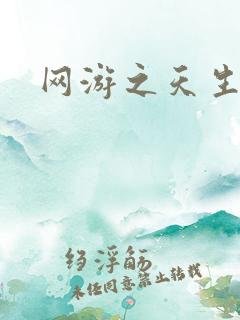 网游之天生
绉浮觞
未经同意禁止转载